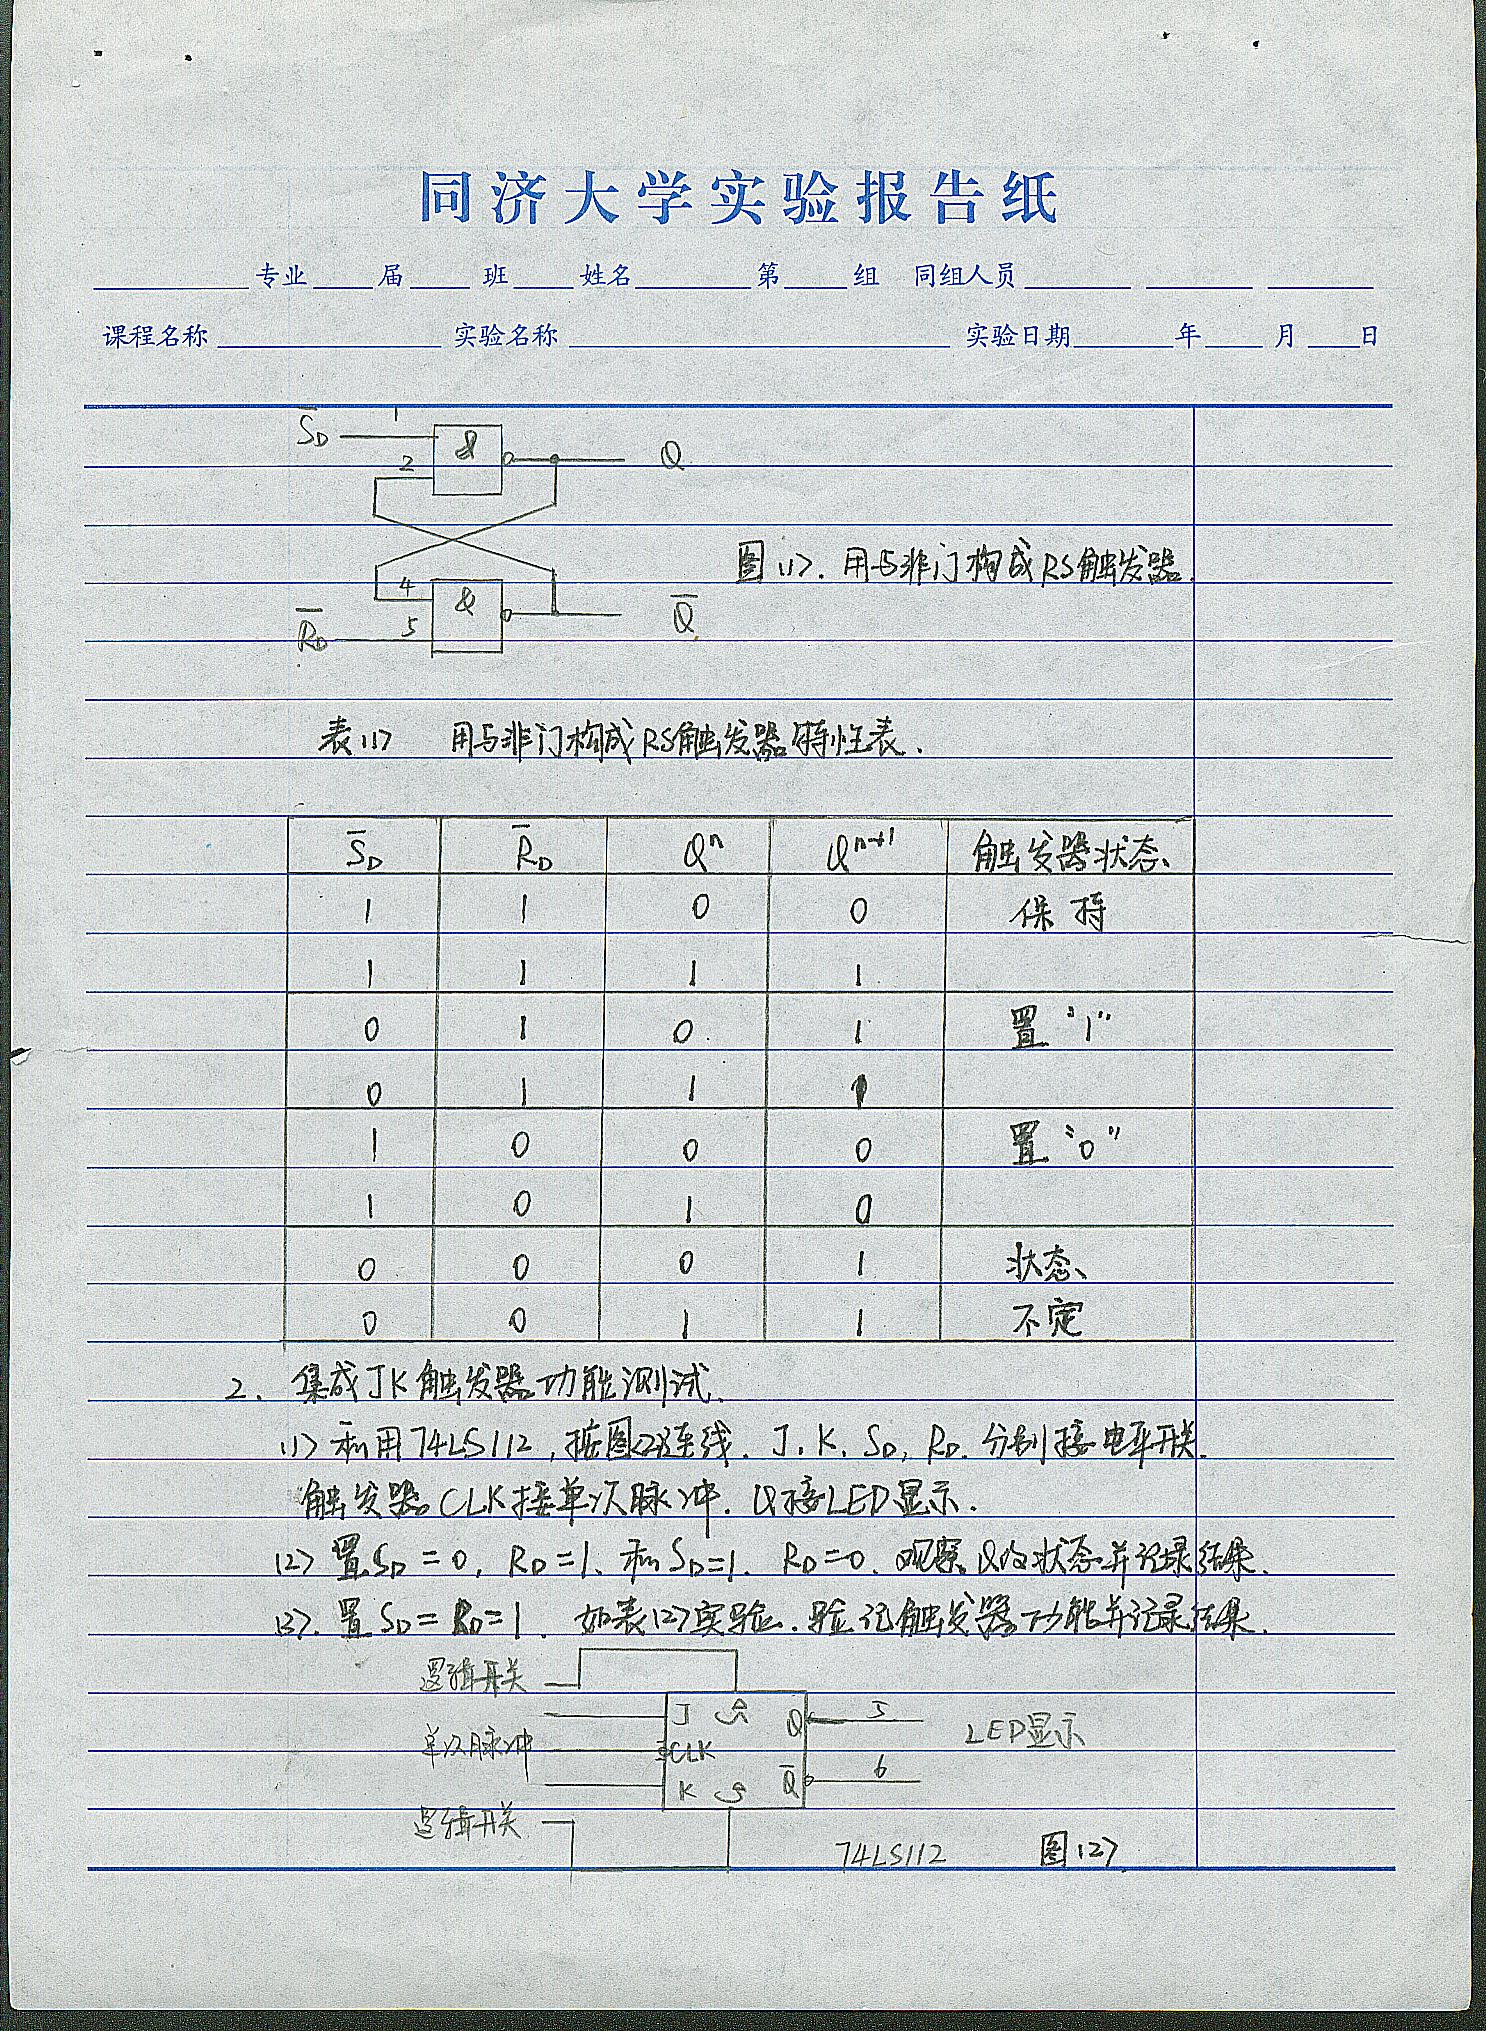 同济大学实验报告纸
专业 届 班 姓名 第 组 同组人员
课程名称 实验名称 实验日期 年 月 日
S̅D 1 & Q
2
图(1). 用与非门构成RS触发器.
4 & Q̅
R̅D 5
表(1) 用与非门构成RS触发器特性表.
S̅D R̅D Qⁿ Qⁿ⁺¹ 触发器状态
1 1 0 0 保持
1 1 1 1
0 1 0 1 置“1”
0 1 1 1
1 0 0 0 置“0”
1 0 1 0
0 0 0 1 状态
0 0 1 1 不定
2. 集成JK触发器功能测试.
(1) 利用74LS112, 按图(2)连线. J. K. SD, RD. 分别接电平开关.
触发器CLK接单次脉冲. Q接LED显示.
(2) 置SD=0, RD=1. 和SD=1. RD=0. 观察Q的状态并记录结果.
(3). 置SD=RD=1. 如表(2)实验. 验记触发器功能并记录结果.
逻辑开关
J Q 5
单次脉冲 CLK LED显示
K Q̅ 6
逻辑开关
74LS112 图(2)